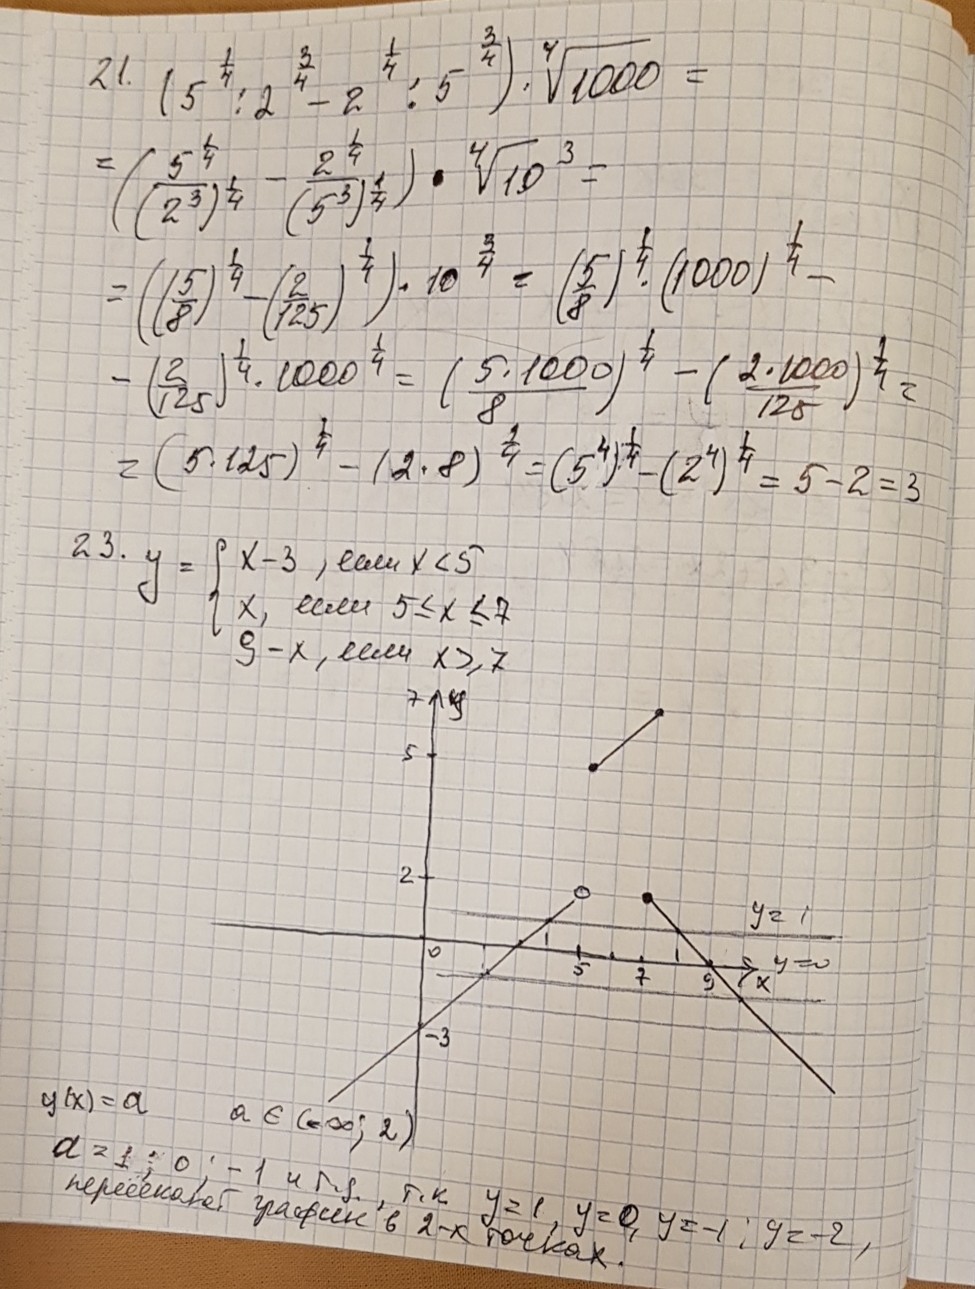 21. (5^{1/4} : 2^{3/4} - 2^{1/4} : 5^{3/4}) · ∜1000 =
= (5^{1/4}/(2^3)^{1/4} - 2^{1/4}/(5^3)^{1/4}) • ∜10^3 =
= ((5/8)^{1/4} - (2/125)^{1/4}) · 10^{3/4} = (5/8)^{1/4} · (1000)^{1/4} -
- (2/125)^{1/4} · 1000^{1/4} = (5·1000/8)^{1/4} - (2·1000/125)^{1/4} =
= (5·125)^{1/4} - (2·8)^{1/4} = (5^4)^{1/4} - (2^4)^{1/4} = 5-2=3
23. y = { x-3, если x<5
x, если 5≤x≤7
9-x, если x≥7
7 y
5
2
y=1
0 5 7 9 x y=0
-3
y(x)=a a∈(-∞; 2)
a=1; 0; -1 и т.д., т.к y=1, y=0, y=-1; y=-2,
пересекают график в 2-х точках.